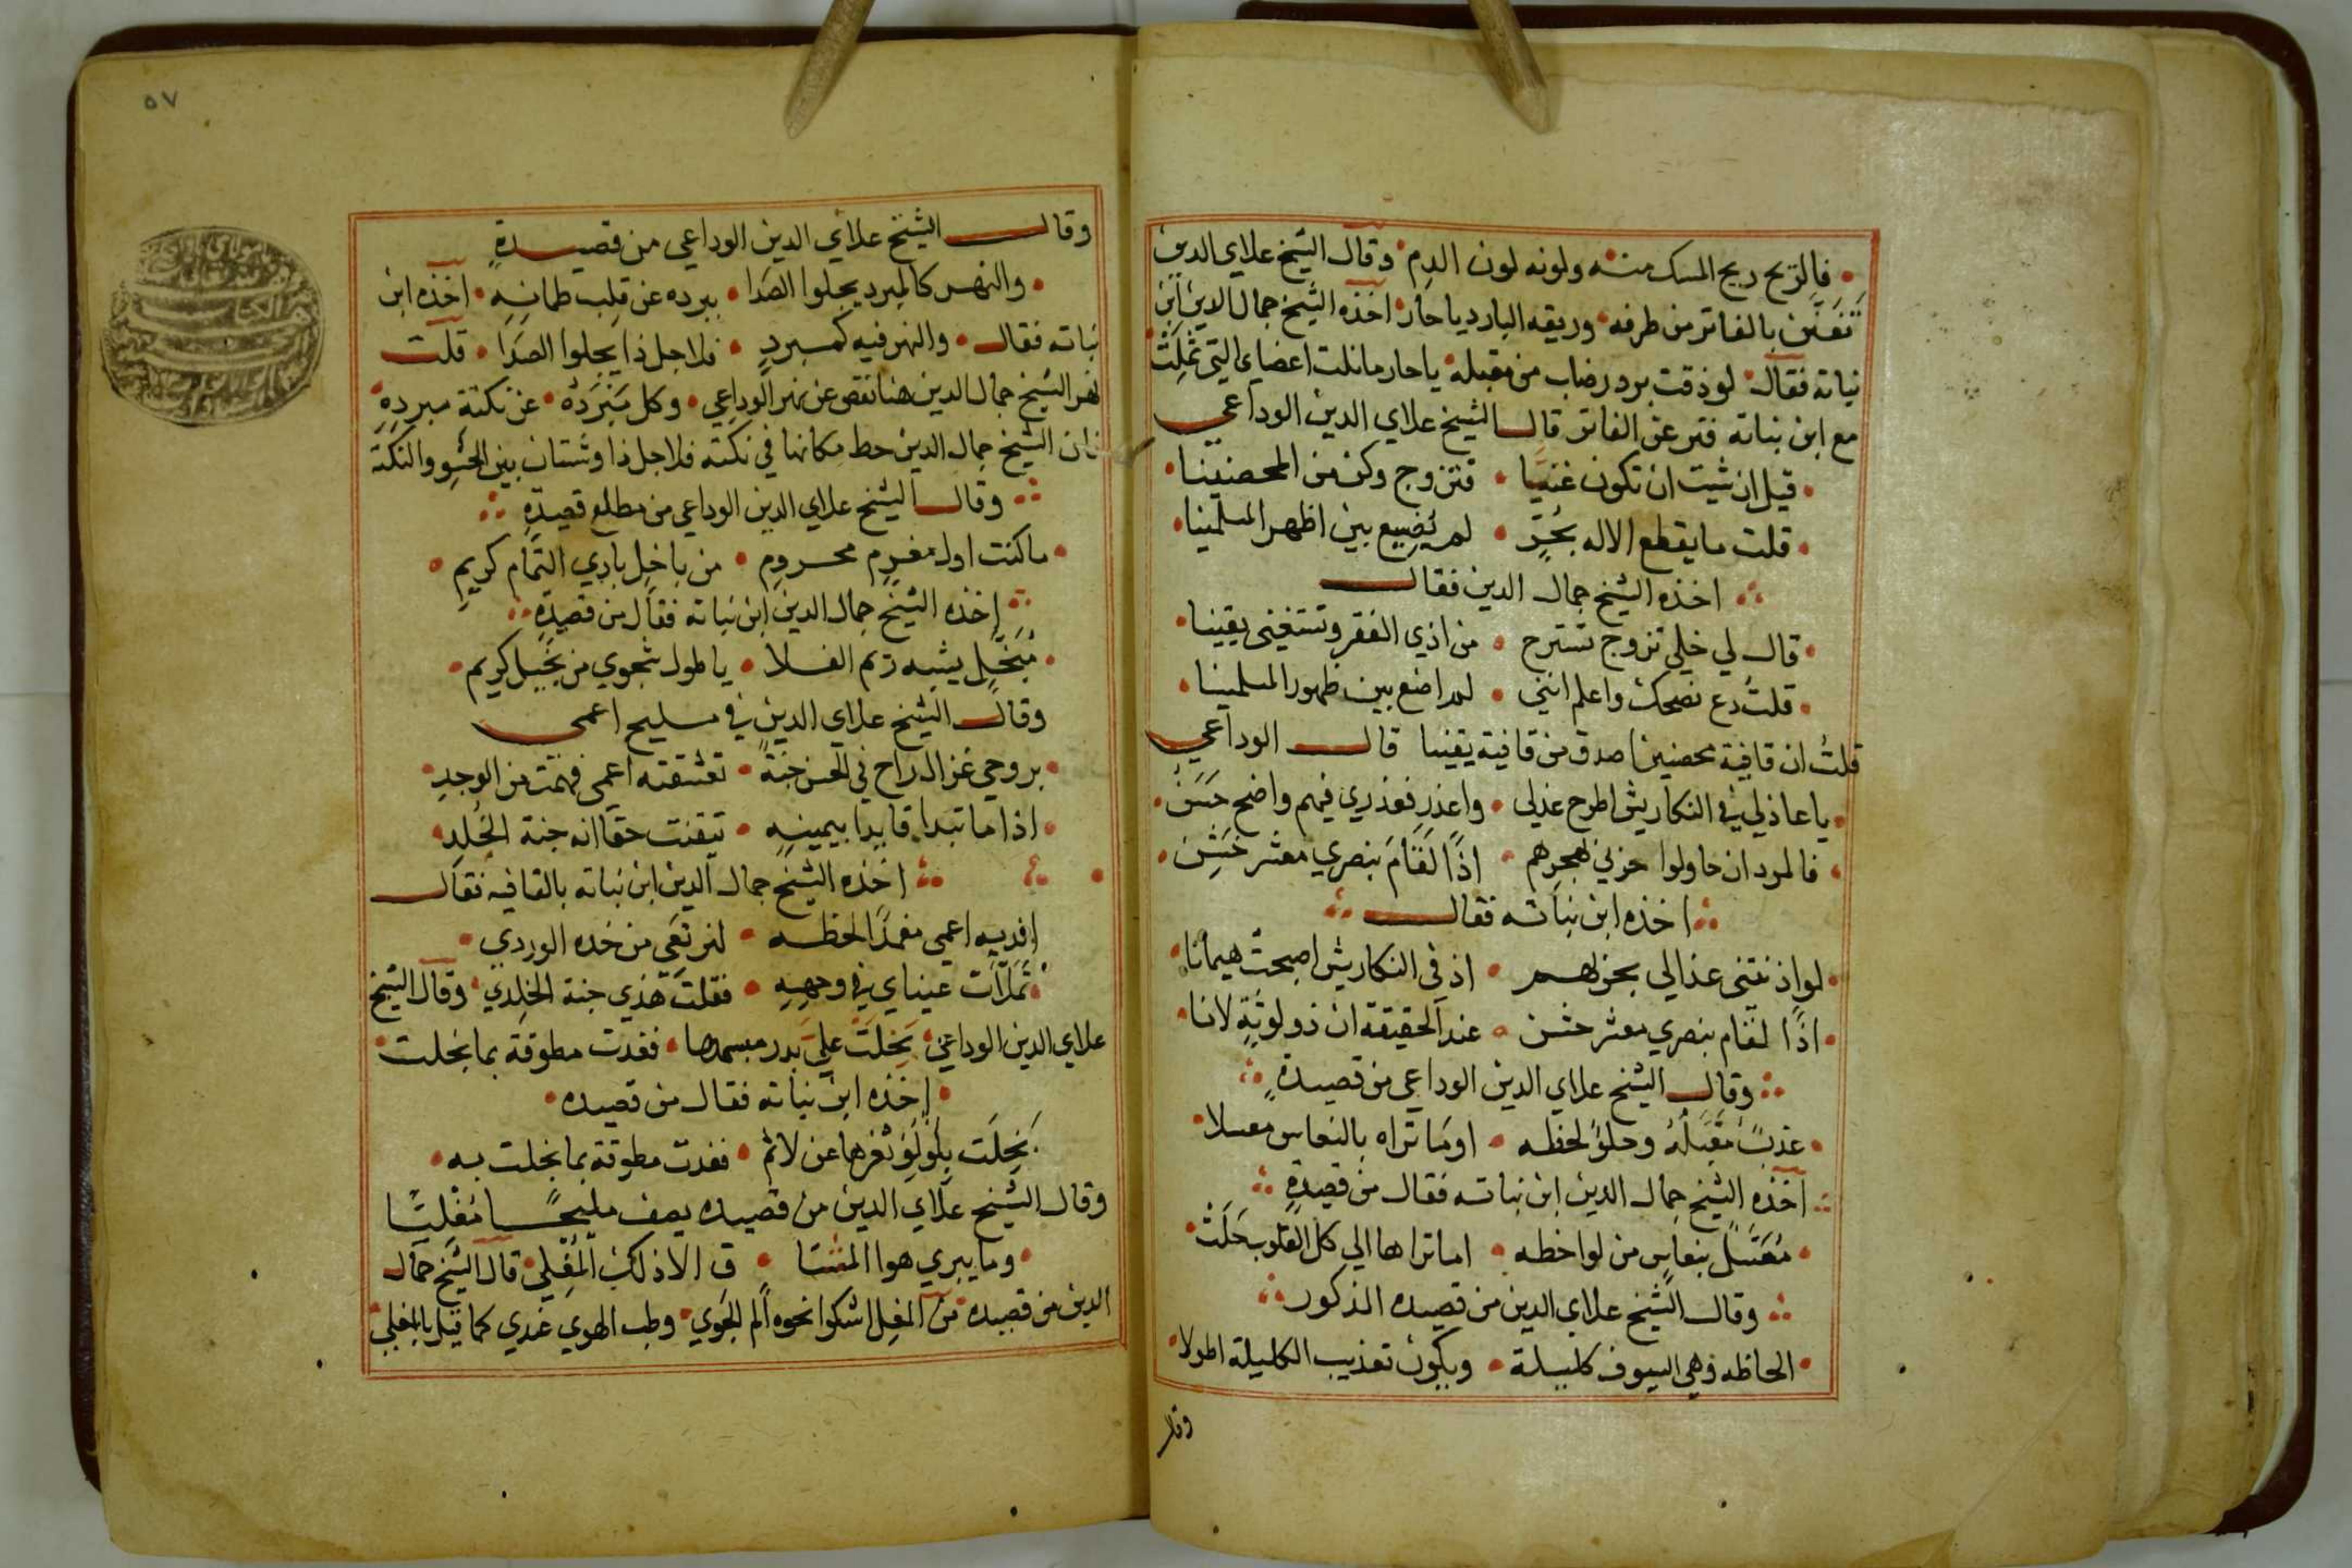 فالريح ريح المسك منه ولونه لون الدم وقال الشيخ علاي الدين
تفنن بالفاتر من طرفه وريقه البارد ياحار اخذه الشيخ جمال الدين ابن
نباته فقال لو ذقت برد رضاب من مقبله ياحار مانلت اعضاي التي ثملت
مع ابن نباته فتر عن الفاتر قال الشيخ علاي الدين الوداعي
قيل ان شيت ان تكون غنيا فتزوج وكن من المحصنينا
قلت ما يقطع الاله بحر لم يضيع بين اظهر المسلمينا
اخذه الشيخ جمال الدين فقال
قال لي خلي تزوج تسترح من اذي الفقر وتستغني يقينا
قلت دع نصحك واعلم انني لم اضع بين ظهور المسلمينا
قلت ان قافية محصنين اصدق من قافية يقينا قال الوداعي
ياعاذلي في النكاريش اطرح عذلي واعذر فعذري فيهم واضح حسن
فالمرد ان حاولوا حربي بهجرهم اذًا لقام بنصري معشر خشن
اخذه ابن نباته فقال
لو اذنتني عذالي بحربهم اذ في النكاريش اصبحت هيمانا
اذًا لقام بنصري معشر خشن عند الحقيقة ان ذو لوثة لانا
وقال الشيخ علاي الدين الوداعي من قصيدة
عذبٌ مقبله وحلوٌ لحظه اوما تراه بالنعاس معسلا
اخذه الشيخ جمال الدين ابن نباته فقال من قصيدة
معسل بنعاس من لواحظه اما تراها الي كل القلوب حلت
وقال الشيخ علاي الدين من قصيده المذكور
الحاظه وهي السيوف كليلة ويكون تعذيب الكليلة اطولا
وقال
٥٧
وقال الشيخ علاي الدين الوداعي من قصيدة
والنهر كالمبرد يجلوا الصدا ببرده عن قلب ظمانه اخذه ابن
نباته فقال والنهر فيه كمبرد فلاجل ذا يجلوا الصدا قلت
نهر الشيخ جمال الدين هنا نقص عن نهر الوداعي وكل عن نكتة مبرده
الشيخ جمال الدين حط مكانها في نكتته فلاجل ذا وشتان بين الحشو والنكتة
وقال الشيخ علاي الدين الوداعي من مطلع قصيدة
ماكنت اول مغرم محروم من باخل بادي النمام كريم
اخذه الشيخ جمال الدين ابن نباته فقال من قصيدة
مبخل يشبه ريم الفلا ياطول شجوي من بخيل كريم
وقال الشيخ علاي الدين في مليح اعمي
بروحي غزال راح في الحسن جنة تعشقته اعمي فهمت من الوجد
اذا ما تبدا قايدا بيمينه تيقنت حقا انه جنة الخلد
اخذه الشيخ جمال الدين ابن نباته بالقافيه فقال
افديه اعمي مغمدًا لحظه من خده الوردي
تملات عيناي في وجهه فقلت هذي جنة الخلدي وقال الشيخ
علاي الدين الوداعي بخلت علي بدر مبسمها فغدت مطوقة بما بخلت
اخذه ابن نباته فقال من قصيده
بخلت بلؤلؤ ثغرها عن لاثم فغدت مطوقة بما بخلت به
وقال الشيخ علاي الدين من قصيده يصف مليحًا مغليًا
وما يبري هوا المشتا ق الا ذلك المغلي قال الشيخ جمال
الدين من قصيده من المغل اشكوا نحوه ألم الجوي وطب الهوي عندي كما قيل بالمغلي